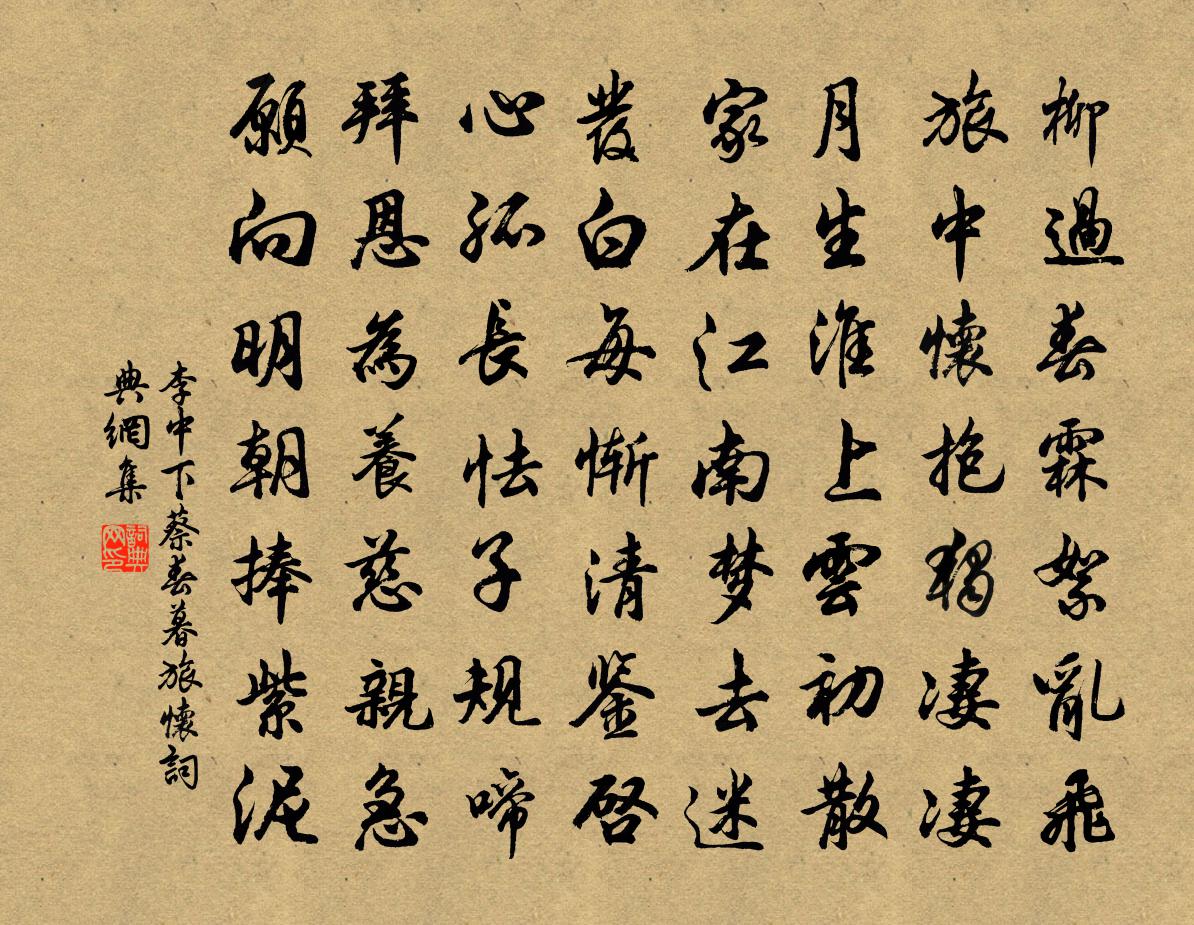 柳過春霖絮亂飛
旅中懷抱獨凄凄
月生淮上雲初散
家在江南梦去迷
發白每慚清鉴啓
心孤長怯子規啼
拜恩為養慈親急
願向明朝捧紫泥
李中下蔡春暮旅懷詞
典網集
詞典
网印